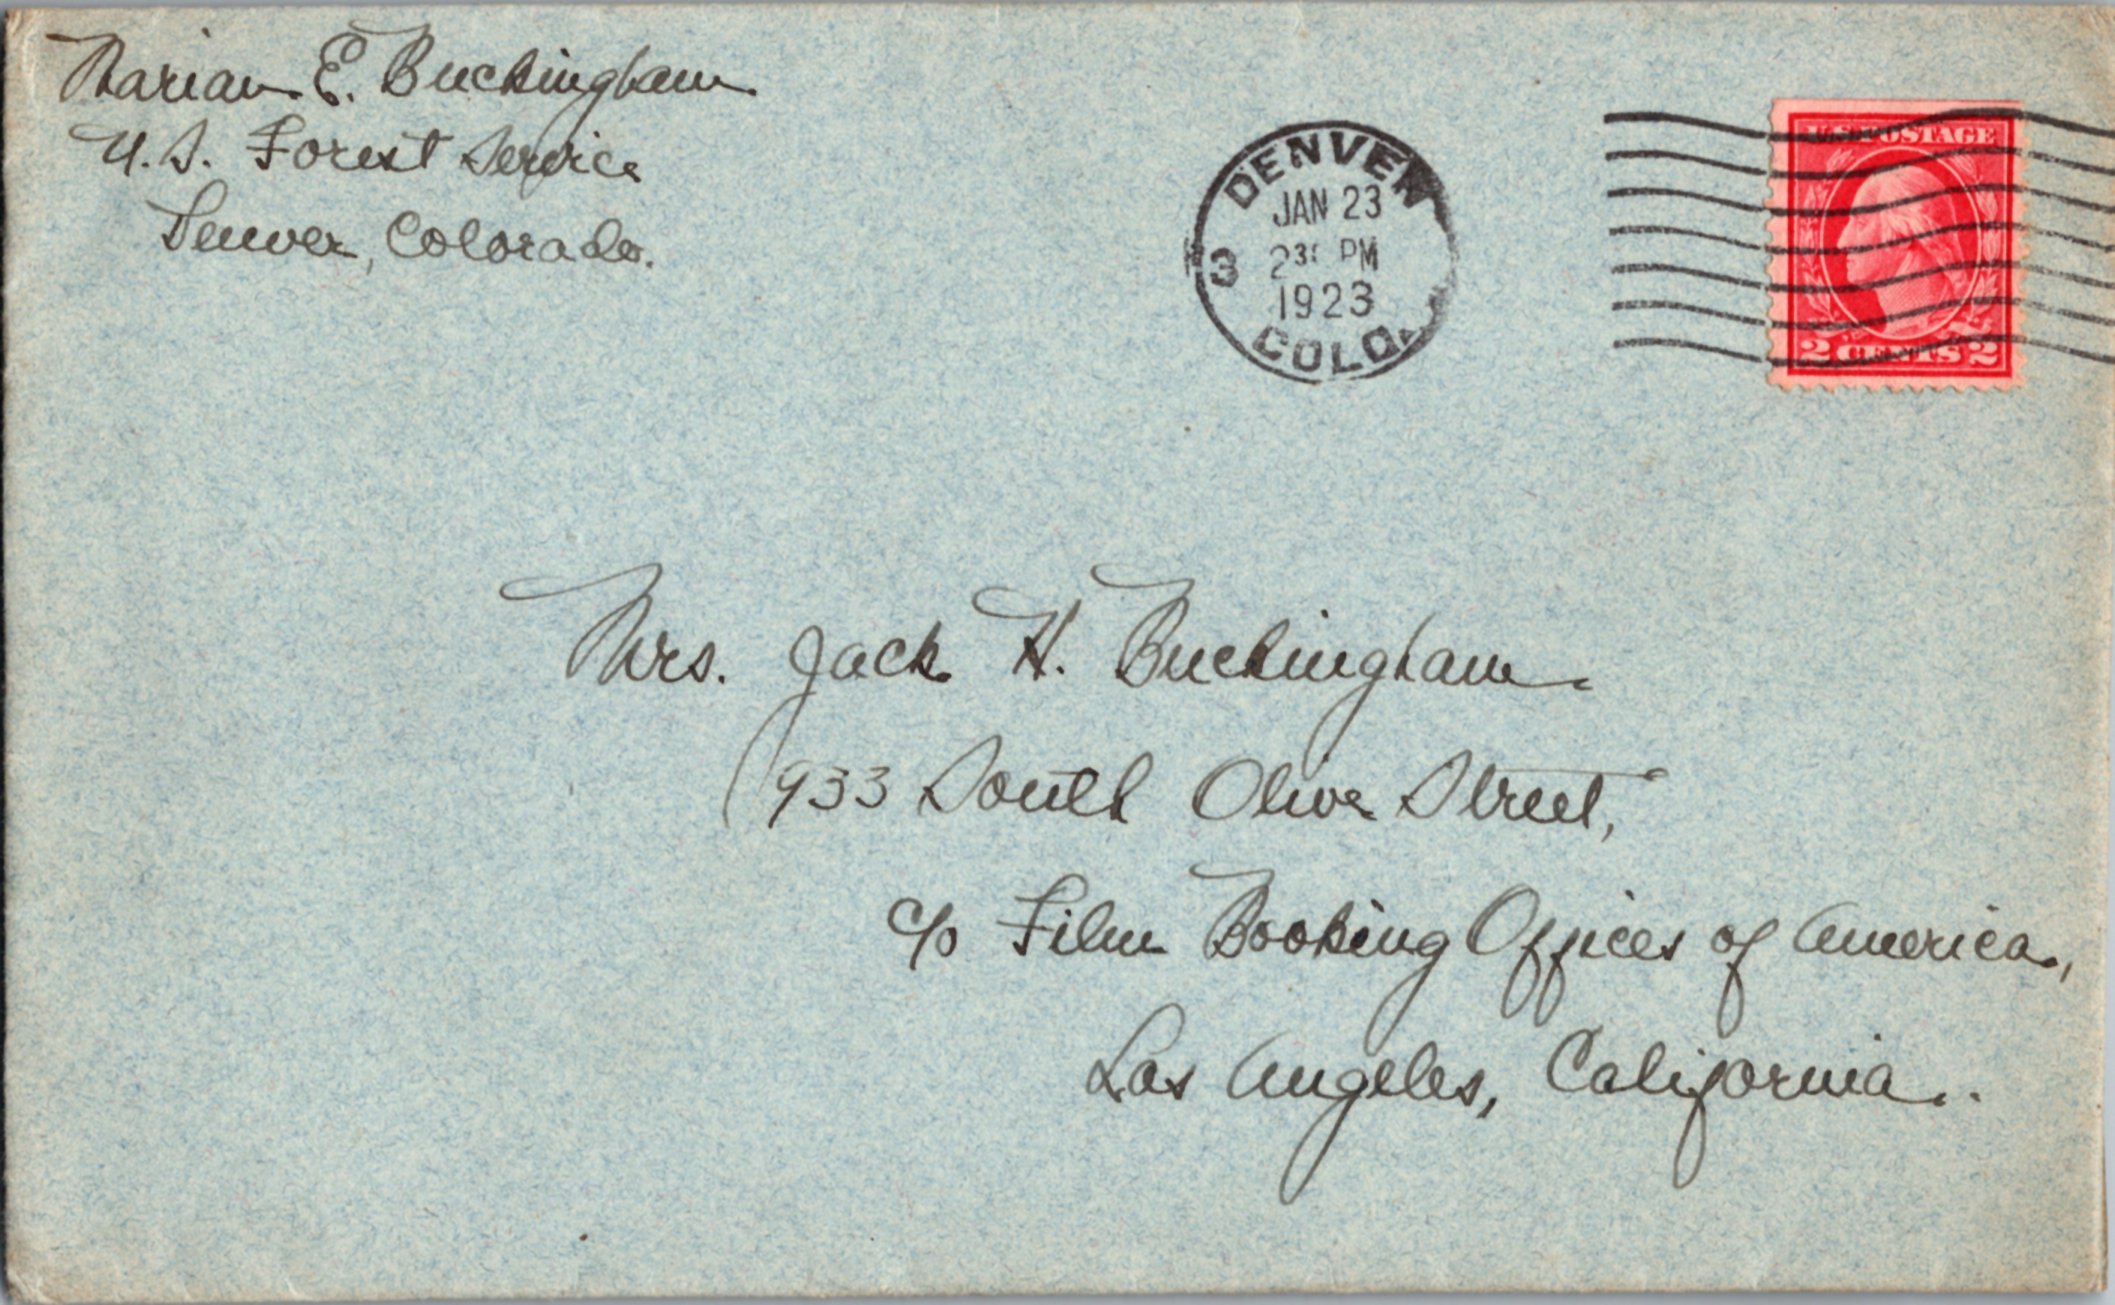 Marian E. Buckingham
U.S. Forest Service
Denver, Colorado.
DENVER
JAN 23
3 PM
1923
COLO.
U.S. POSTAGE
2 CENTS 2
Mrs. Jack H. Buckingham
933 South Olive Street,
c/o Film Booking Offices of America,
Los Angeles, California.